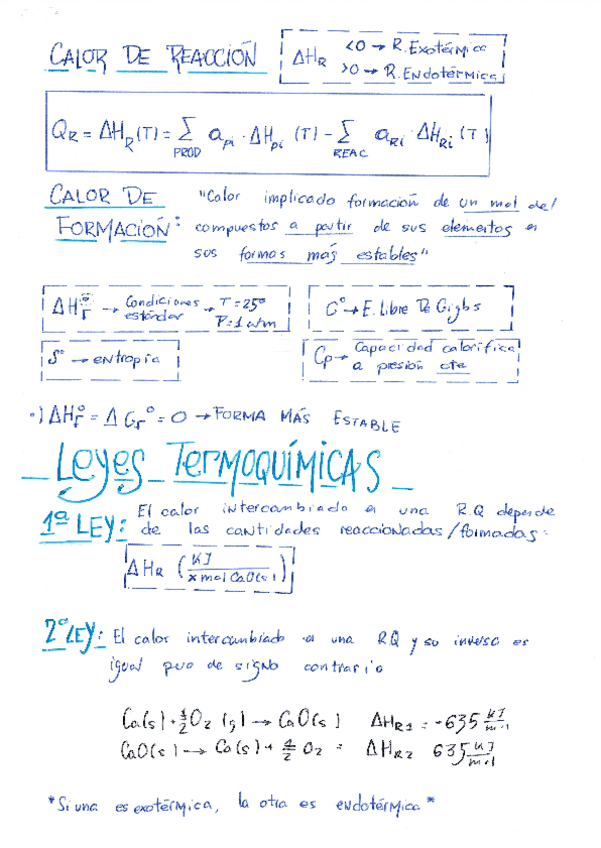 CALOR DE REACCIÓN
ΔHR <0 → R. Exotérmica
>0 → R. Endotérmica
QR = ΔHR(T) = Σ PROD api · ΔHpi (T) - Σ REAC aRi · ΔHRi (T)
CALOR DE FORMACIÓN:
"Calor implicado formación de un mol del
compuestos a partir de sus elementos en
sus formas más estables"
ΔHf° → Condiciones estándar → T = 25° P = 1 atm
G° → E. Libre De Gigbs
S° → entropía
Cp → Capacidad calorífica a presión cte
•) ΔHf° = ΔGf° = 0 → FORMA MÁS ESTABLE
LEYES TERMOQUÍMICAS
1ª LEY: El calor intercambiado en una R.Q depende
de las cantidades reaccionadas/formadas:
ΔHR (KJ / x mol CaO(s))
2ª LEY: El calor intercambiado en una R.Q y su inversa es
igual pero de signo contrario
Ca(s) + 1/2 O2 (g) → CaO(s) ΔHR1 = -635 KJ/mol
CaO(s) → Ca(s) + 1/2 O2 = ΔHR2 635 KJ/mol
*Si una es exotérmica, la otra es endotérmica*